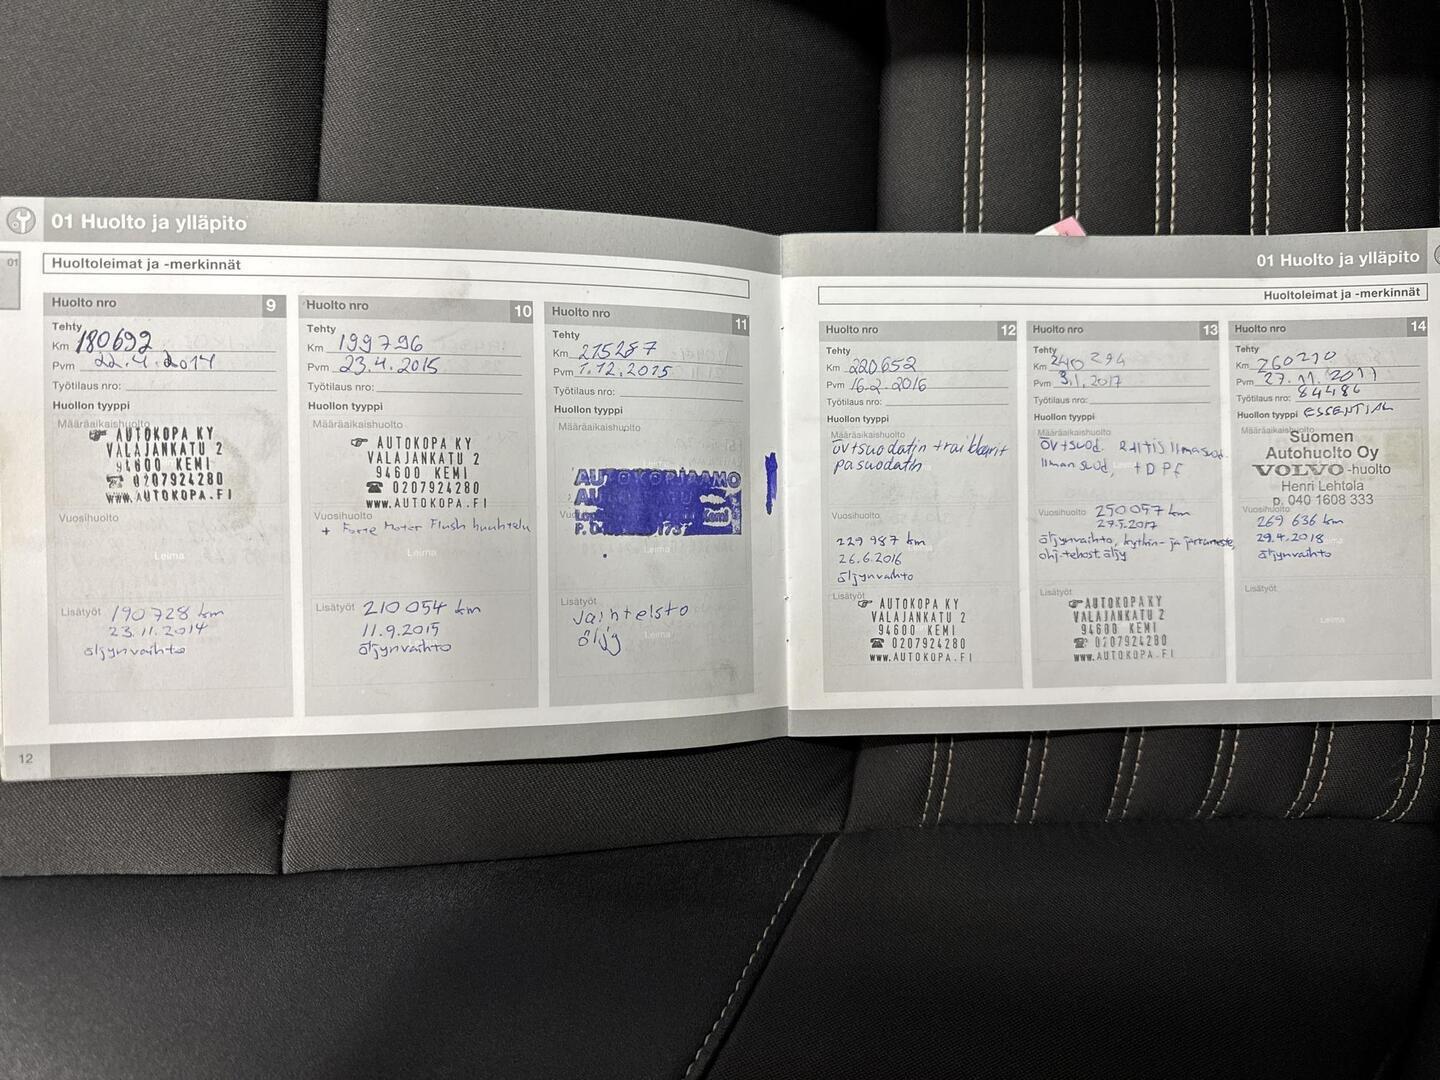 01 Huolto ja ylläpito
01
Huoltoleimat ja -merkinnät
Huolto nro 9
Tehty
Km 180692
Pvm 22.4.2014
Työtilaus nro:
Huollon tyyppi
Määräaikaishuolto
AUTOKOPA KY
VALAJANKATU 2
94600 KEMI
0207924280
www.AUTOKOPA.FI
Vuosihuolto
Leima
Lisätyöt 190 728 km
23.11.2014
öljynvaihto
Huolto nro 10
Tehty
Km 199796
Pvm 23.4.2015
Työtilaus nro:
Huollon tyyppi
Määräaikaishuolto
AUTOKOPA KY
VALAJANKATU 2
94600 KEMI
0207924280
www.AUTOKOPA.FI
Vuosihuolto
+ Forte Motor Flush huuhtelu
Leima
Lisätyöt 210 054 km
11.9.2015
öljynvaihto
Huolto nro 11
Tehty
Km 215287
Pvm 1.12.2015
Työtilaus nro:
Huollon tyyppi
Määräaikaishuolto
AUTOKORJAAMO
Vuosihuolto
Leima
Lisätyöt
Vaihteisto
öljy
Leima
12
01 Huolto ja ylläpito
Huoltoleimat ja -merkinnät
Huolto nro 12
Tehty
Km 220652
Pvm 16.2.2016
Työtilaus nro:
Huollon tyyppi
Määräaikaishuolto
öv+suodatin + raitisilm
pasuodatin
Vuosihuolto
229 987 km
26.6.2016
öljynvaihto
Lisätyöt
AUTOKOPA KY
VALAJANKATU 2
94600 KEMI
0207924280
www.AUTOKOPA.FI
Huolto nro 13
Tehty
Km 240 294
Pvm 3.1.2017
Työtilaus nro:
Huollon tyyppi
Määräaikaishuolto
öv+suod. raitisilmasuod.
ilmansuod, + DPF
Vuosihuolto 250 057 km
27.5.2017
öljynvaihto, kytkin- ja jarruneste,
ohj.tehost.öljy
Lisätyöt
AUTOKOPA KY
VALAJANKATU 2
94600 KEMI
0207924280
www.AUTOKOPA.FI
Huolto nro 14
Tehty
Km 260210
Pvm 27.11.2017
Työtilaus nro: 84486
Huollon tyyppi ESSENTIAL
Määräaikaishuolto
Suomen
Autohuolto Oy
VOLVO-huolto
Henri Lehtola
p. 040 1608 333
Vuosihuolto
269 636 km
29.4.2018
öljynvaihto
Lisätyöt
Leima